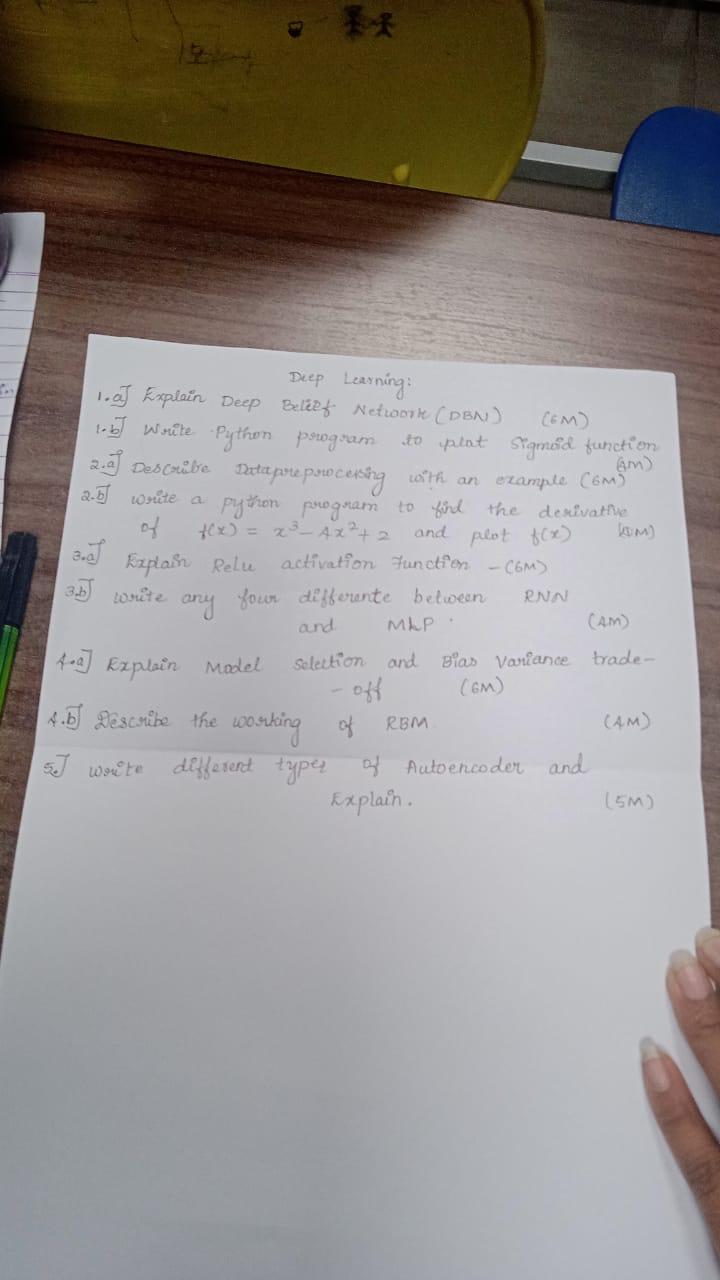 Deep Learning:
1.a] Explain Deep Belief Network (DBN) (6M)
1.b] Write Python program to plot Sigmoid function (4M)
2.a] Describe Datapreprocersing with an example (6M)
2.b] write a python program to find the derivative
of f(x) = x³ - 4x² + 2 and plot f(x) (4M)
3.a] Explain Relu activation Function - (6M)
3.b] write any four differente between RNN
and MLP. (4M)
4.a] Explain Model Selection and Bias Variance trade-
- off (6M)
4.b] Describe the working of RBM (4M)
5.] write different types of Autoencoder and
Explain. (5M)